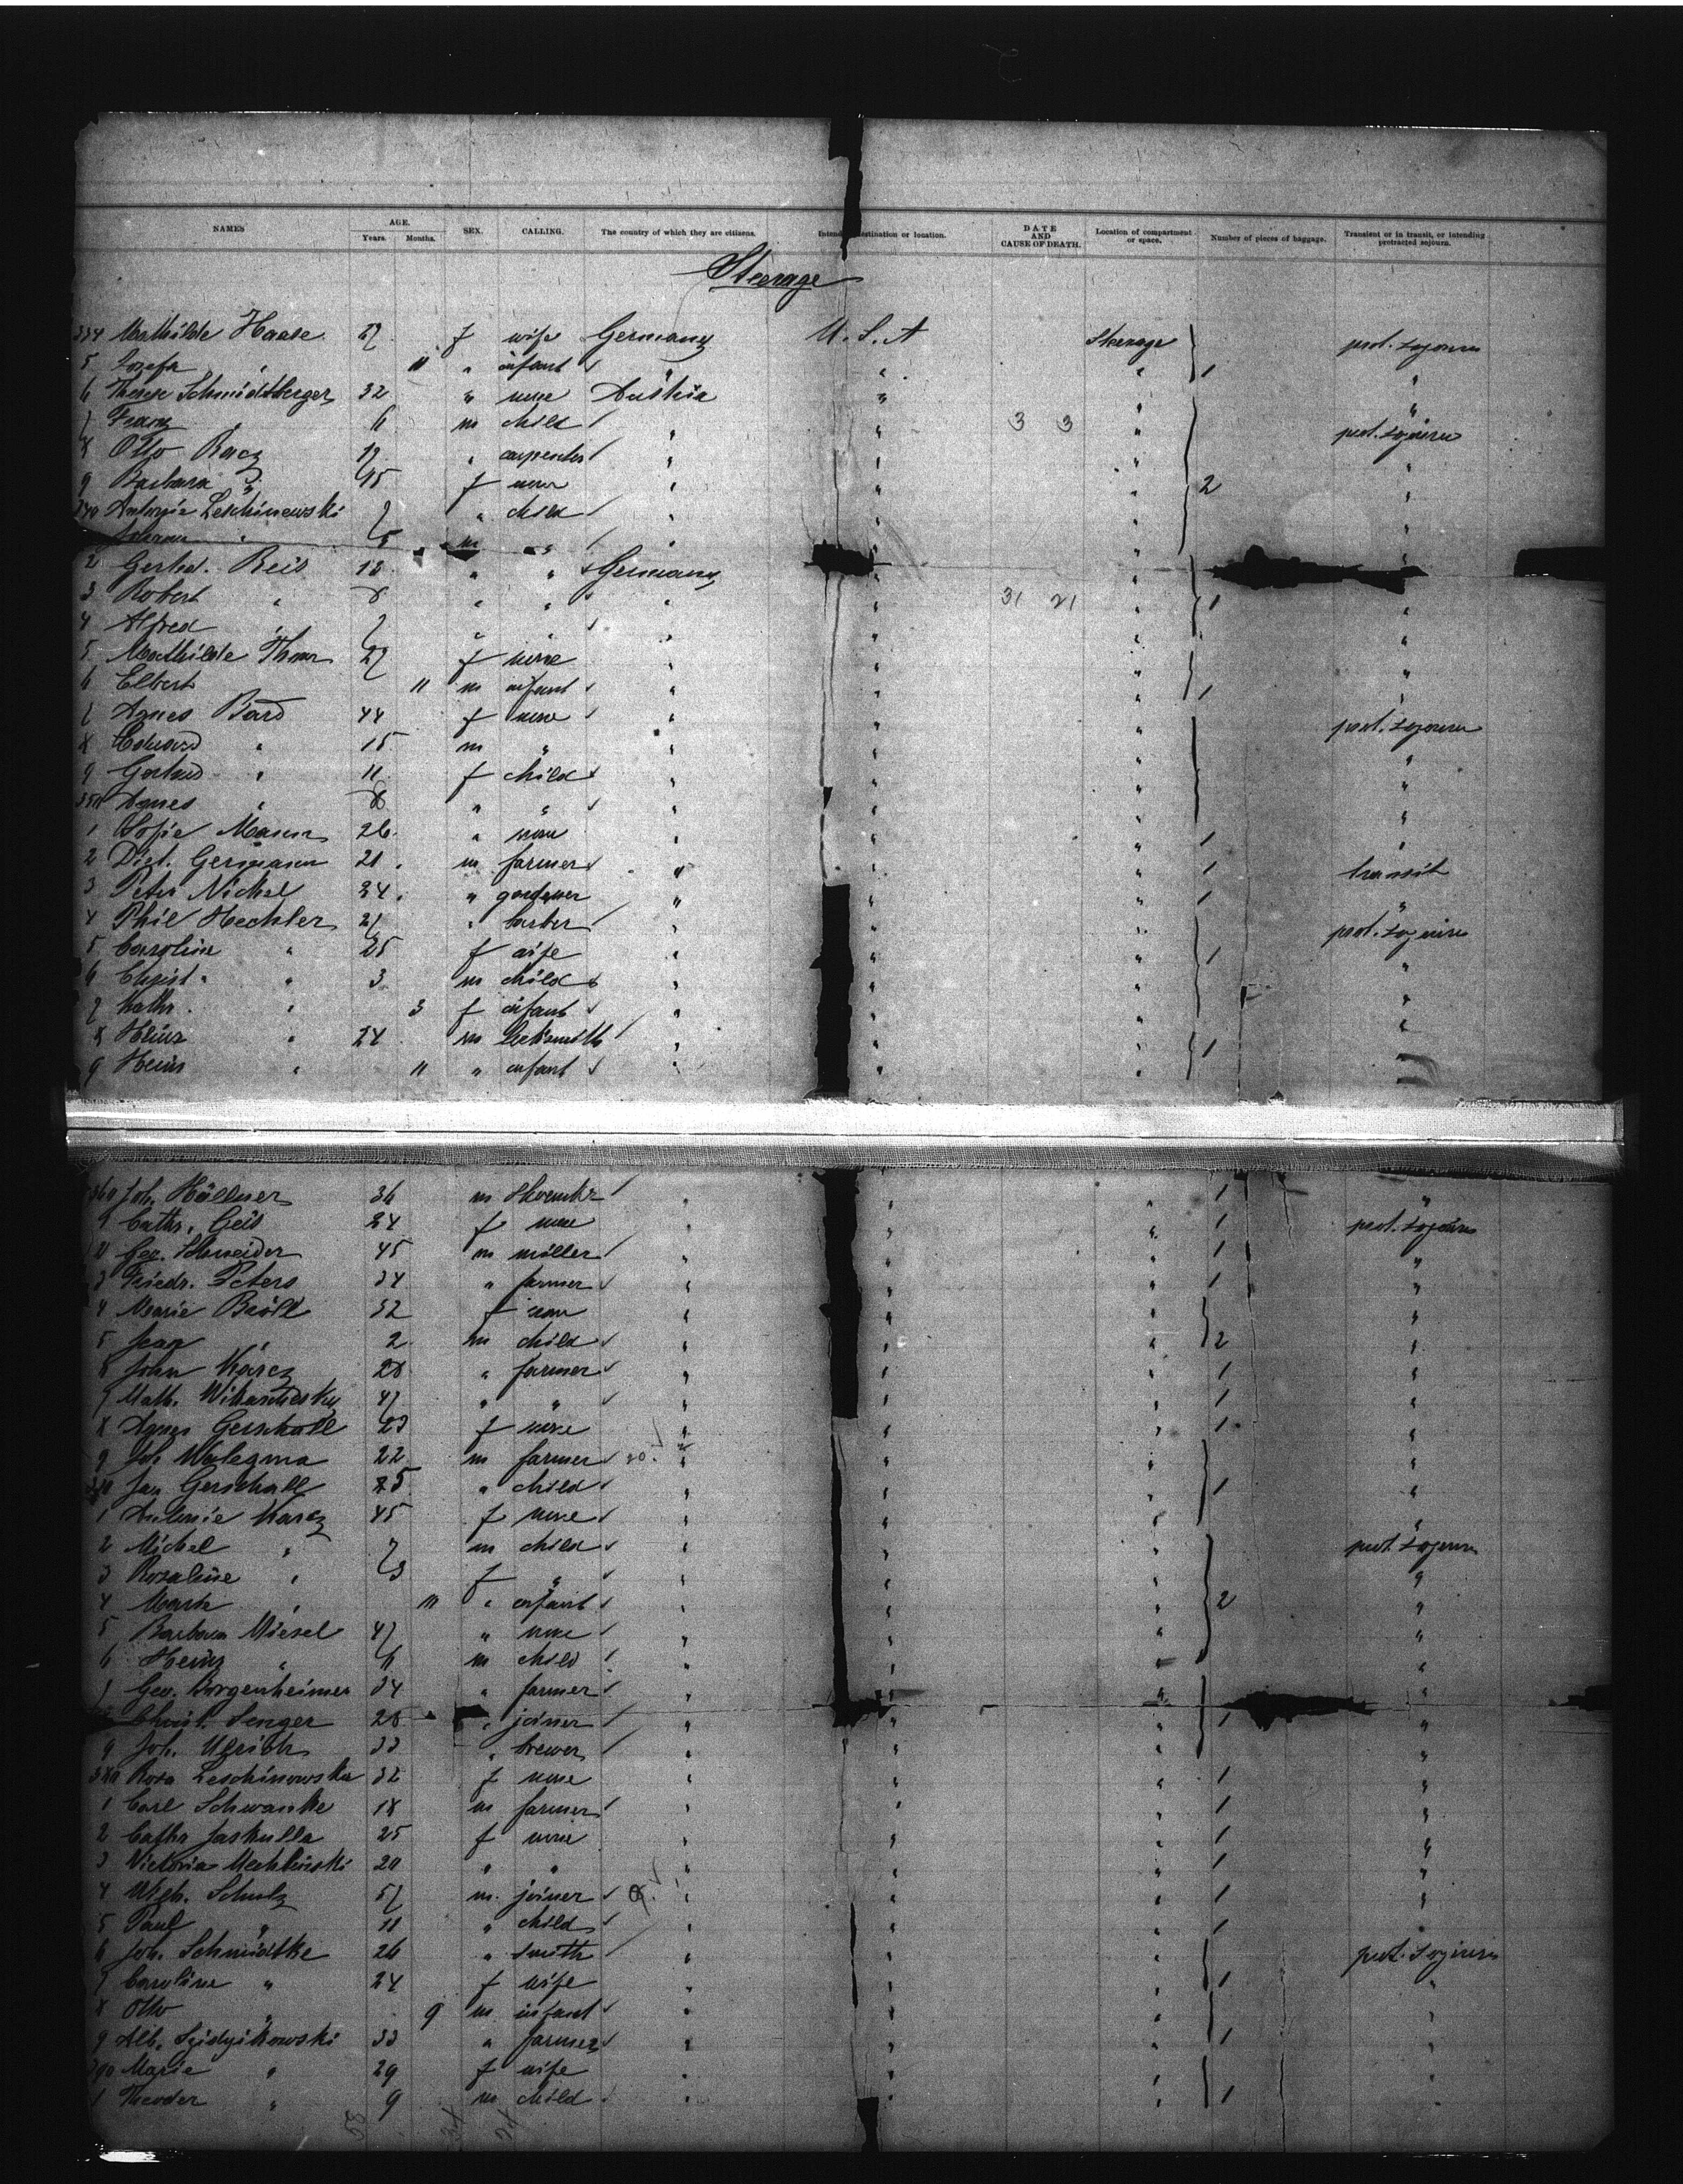 NAMES AGE. Years. Months. SEX. CALLING. The country of which they are citizens. destination or location. DATE AND CAUSE OF DEATH. Location of compartment or space. Number of pieces of baggage. Transient or in transit, or intending protracted sojourn.
Steerage
334 Mathilde Haase 27 f wife Germany U.S.A Steerage prot. sojourn
5 Josefa " 11 " infant " " " 1 "
6 Therese Schmidtberger 32 " none Austria " " "
7 Franz " 6 m child " " 3 3 " prot. sojourn
8 Otto Racz 19 " carpenter " " " "
9 Barbara " 45 f none " " " 2 "
340 Antonie Leschinewski 7 " child " " " "
5 m " " " " "
2 Gerhd. Reis 12 " " Germany " " "
3 Robert " 8 " " " " 31 21 " 1 "
4 Alfred " 7 " " " " " "
5 Mathilde 27 f none " " " "
6 Elbert 11 m infant " " " 1 "
7 Agnes Bard 44 f none " " " prot. sojourn
8 Edward " 15 m " " " " "
9 Gertrud " 11 f child " " " "
350 Agnes " 8 " " " " " "
1 Sofie Mann 26 " none " " " 1 "
2 Diet. Germann 21 m farmer " " " 1 transit
3 Peter Nickel 24 " gardener " " " 1 "
4 Phil Hechler 27 " barber " " " prot. sojourn
5 Caroline " 25 f wife " " " 1 "
6 Christ. " 3 m child " " " "
7 Kathr. " 3 f infant " " " "
8 Heinr " 24 m Locksmith " " " 1 "
9 Heinr " 11 " infant " " " "
360 Joh. Höllner 36 m " " " 1 "
1 Cathr. Geis 24 f none " " " 1 prot. sojourn
2 Geo. Schneider 45 m miller " " " 1 "
3 Friedr. Peters 34 " farmer " " " 1 "
4 Marie Bröll 32 f none " " " "
5 Jean " 2 m child " " " 2 "
6 John Karcz 28 " farmer " " " 1 "
7 Math. 47 " " " " " 1 "
8 Agnes Gerschall 23 f none " " " 1 "
9 Joh Walegma 22 m farmer " " " "
370 Jan Gerschall 5 " child " " " 1 "
1 Antonie Karcz 45 f none " " " "
2 Michel " 7 m child " " " prot. sojourn
3 Rosaline " 3 f " " " " "
4 Marie " 11 " infant " " " 2 "
5 Barbara Miesel 47 " none " " " "
6 Heinr " 6 m child " " " "
7 Geo. Borgenheimer 34 " farmer " " " "
Christ. Senger 28 " joiner " " " 1 "
9 Joh. Ulrich 33 " brewer " " " "
380 Rosa Leschinowska 32 f none " " " 1 "
1 Carl Schwanke 18 m farmer " " " 1 "
2 Cathr Jaskulla 25 f none " " " 1 "
3 Victoria Mechlinski 20 " " " " " 1 "
4 Mich. Schulz 57 m. joiner " " " 1 "
5 Paul " 11 " child " " " 1 "
6 Joh. Schmidtke 26 " smith " " " prot. sojourn
7 Caroline " 24 f wife " " " 1 "
8 Otto " 9 m infant " " " "
9 Alb. 33 " farmer " " " 1 "
390 Marie " 29 f wife " " " "
1 Theodor " 9 m child " " " 1 "